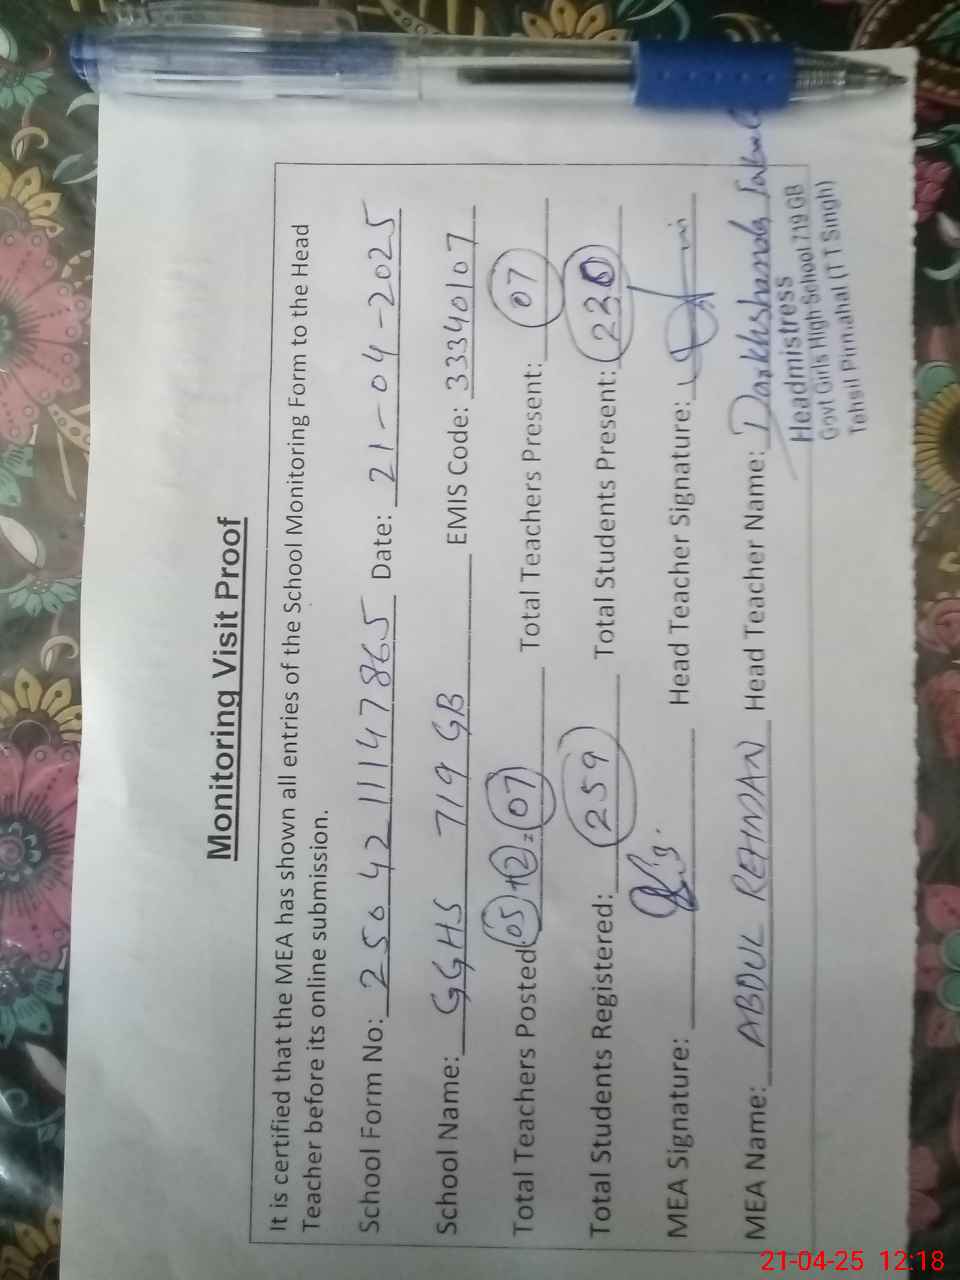 Monitoring Visit Proof
It is certified that the MEA has shown all entries of the School Monitoring Form to the Head
Teacher before its online submission.
School Form No: 2504211147865 Date: 21-04-2025
School Name: GGHS 719 GB EMIS Code: 33340107
Total Teachers Posted: 05+2=07 Total Teachers Present: 07
Total Students Registered: 259 Total Students Present:
MEA Signature: Head Teacher Signature:
MEA Name: ABDUL REHMAN Head Teacher Name: Darkhshanda
Headmistress
Govt Girls High School 719 GB
Tehsil Pirmahal (T T Singh)
21-04-25 12:18